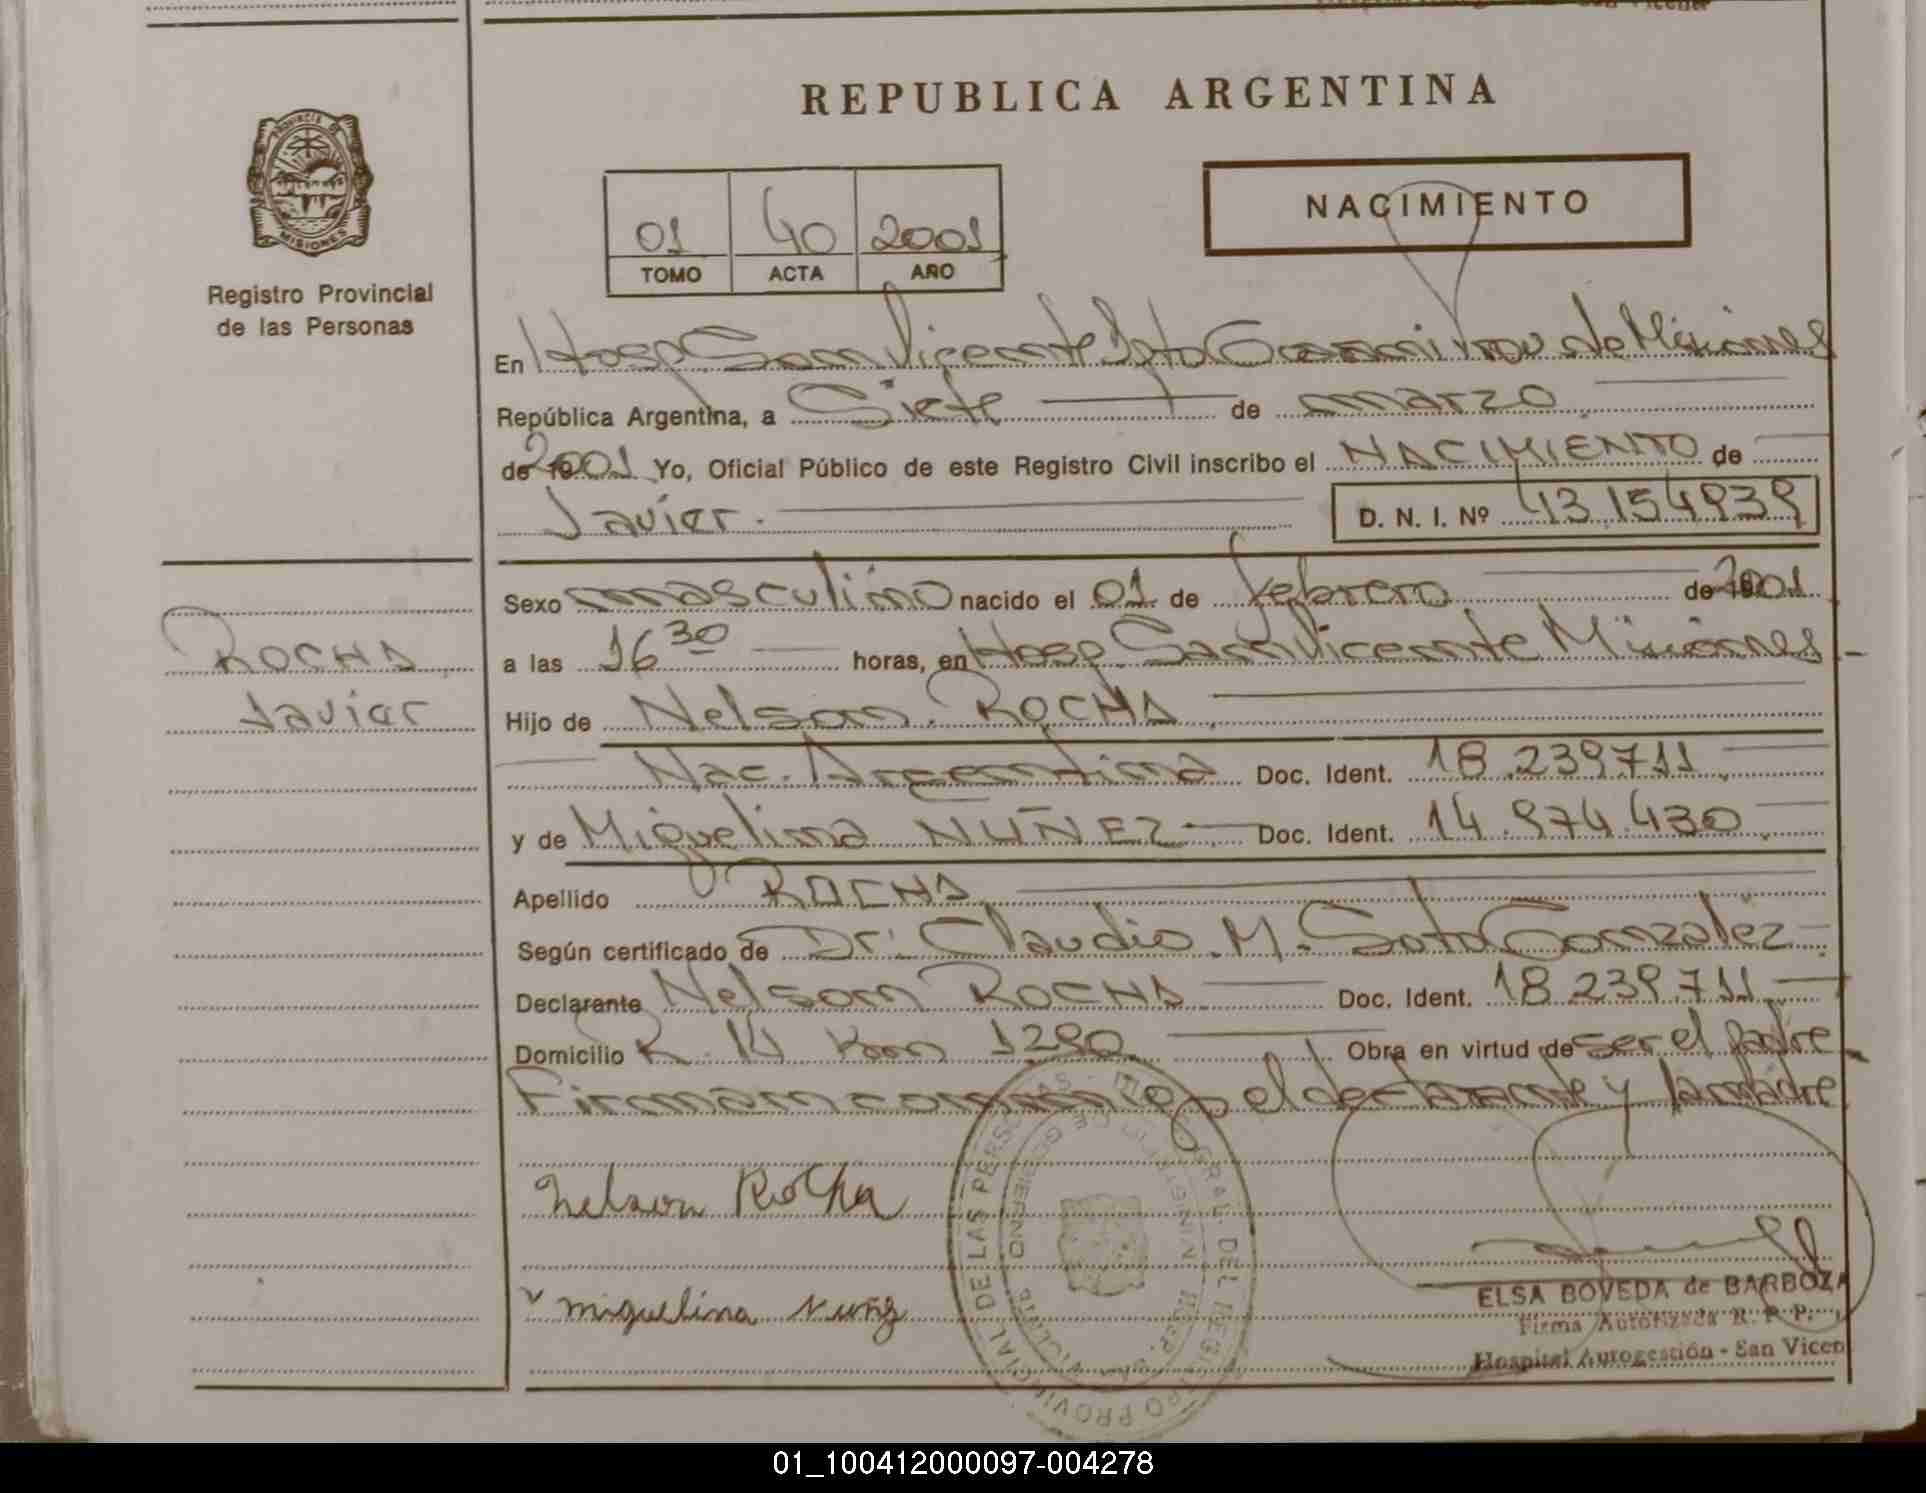 REPUBLICA ARGENTINA
PROVINCIA DE
MISIONES
Registro Provincial
de las Personas
01 40 2001
TOMO ACTA AÑO
NACIMIENTO
En Hosp San Vicente Dpto Guaraní Prov de Misiones
República Argentina, a Siete de marzo
de 2001 Yo, Oficial Público de este Registro Civil inscribo el NACIMIENTO de
Javier. D. N. I. Nº 43.154.939
Sexo masculino nacido el 01 de febrero de 2001
a las 16 30 horas, en Hosp. San Vicente Misiones
Hijo de Nelson. ROCHA
Nac. Argentina Doc. Ident. 18.239711
y de Miguelina NUÑEZ Doc. Ident. 14.974.430
Apellido ROCHA
Según certificado de Dr. Claudio. M. Soto Gonzalez
Declarante Nelson ROCHA Doc. Ident. 18.239.711
Domicilio R. 14 Km 1290 Obra en virtud de ser el padre
Firman conmigo el declarante y la madre
ROCHA
Javier
Nelson Rocha
miguelina Nuñz
ELSA BOVEDA de BARBOZA
Firma Autorizada R. P. P.
Hospital Autogestión - San Vicen
GRAL. DEL REGISTRO PROVINCIAL DE LAS PERSONAS
01_100412000097-004278